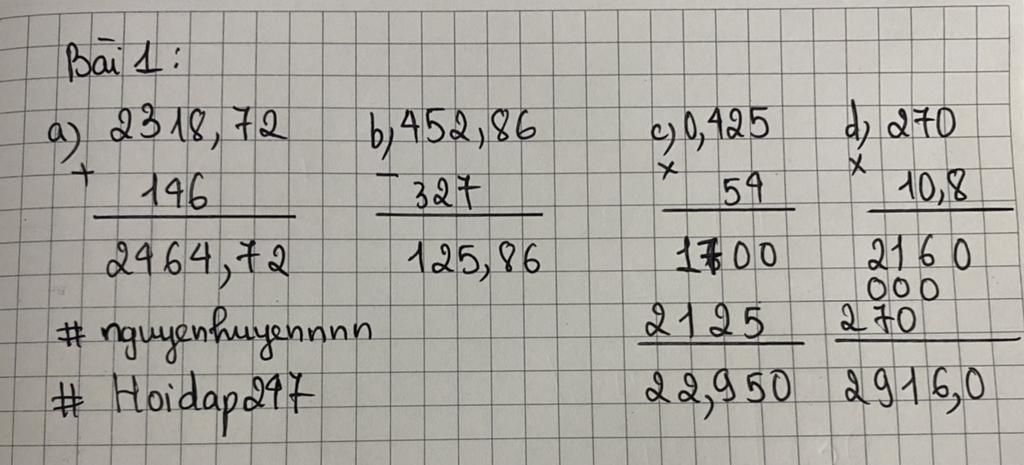 Bài 1:
a) 2318,72 b, 452,86 c, 0,425 d, 270
+ 146 - 327 x 54 x 10,8
2464,72 125,86 1700 2160
000
# nguyenhuyennnnn 2125 270
# Hoidap247 22,950 2916,0